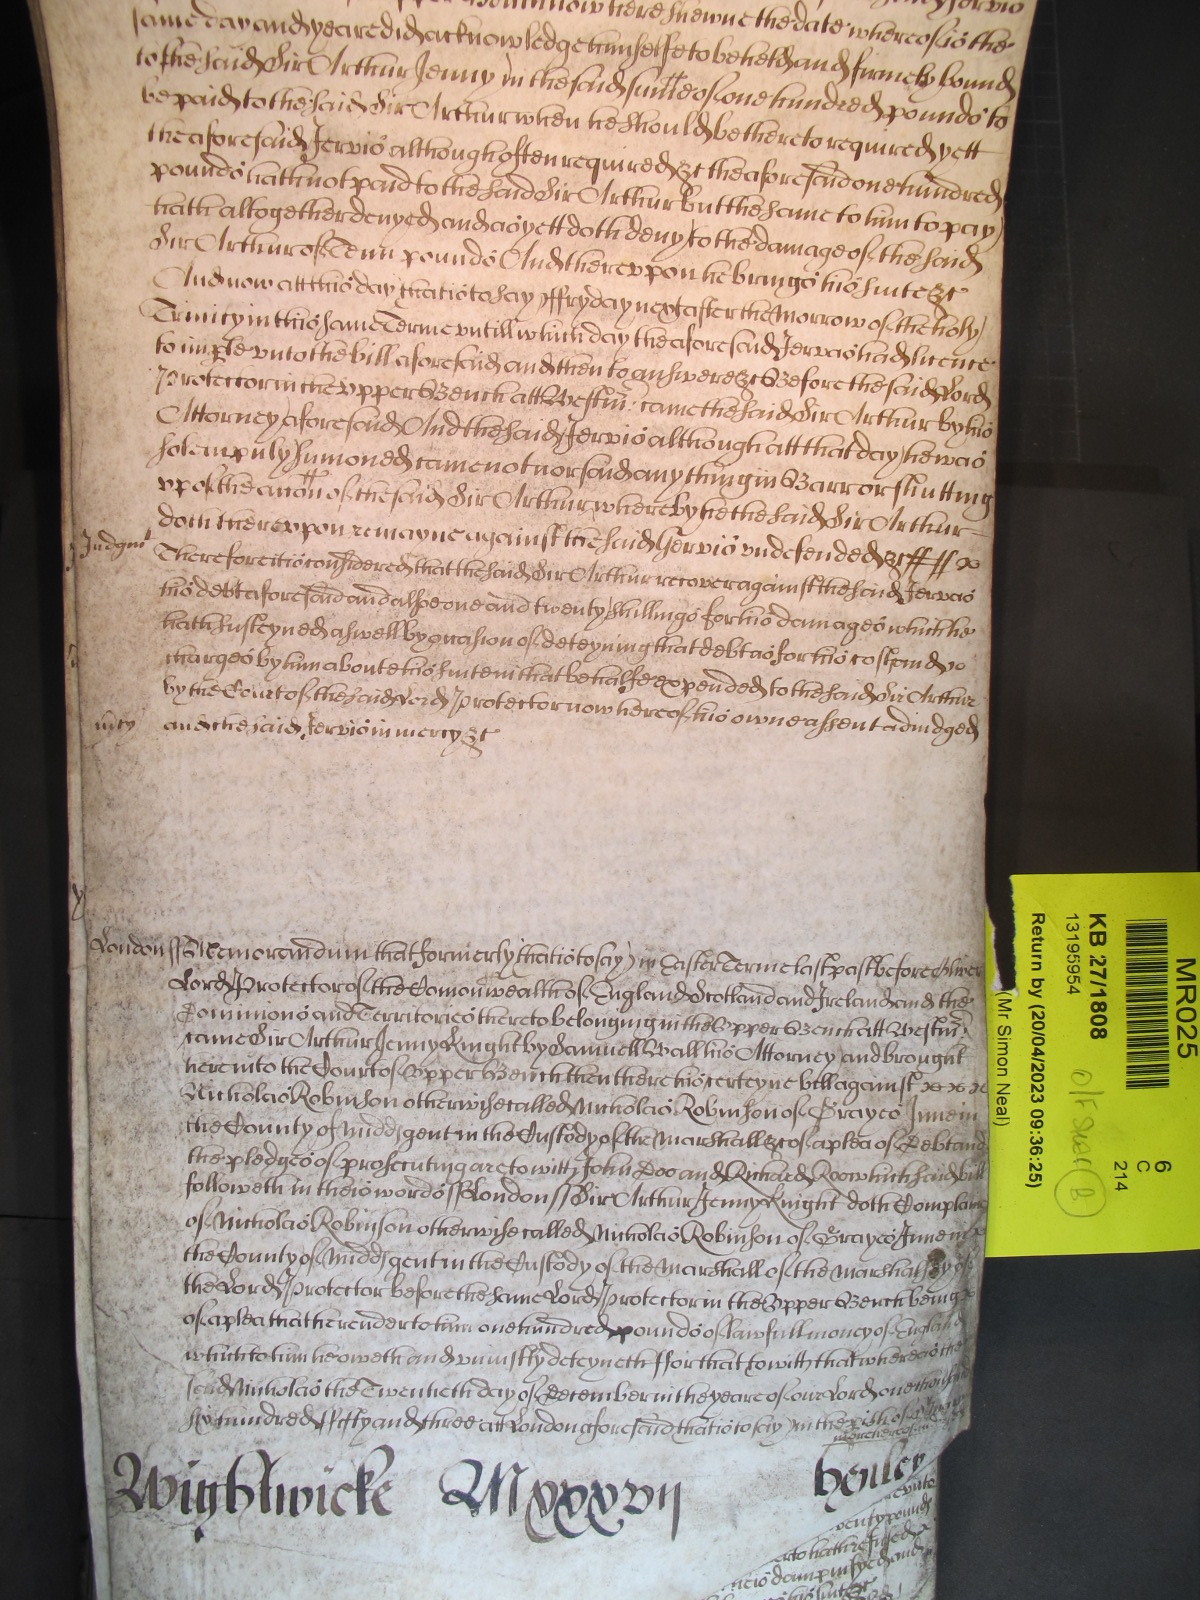 same day and yeare did acknowledge himselfe to be held and firmely bound
to the said Sir Arthur Jenny in the said summe of one hundred pounds to
be paid to the said Sir Arthur when he should be thereto required yett
the aforesaid Jervis although often required &c the aforesaid one hundred
pounds hath not paid to the said Sir Arthur but the same to him to pay
hath altogether denyed and as yett doth deny to the damage of the said
Sir Arthur of Tenn pounds And thereuppon he brings his suite &c
And now att this day that is to say ffryday next after the Morrow of the holy
Trinity in this same Terme untill which day the aforesaid Jervis had licence
to imple unto the bill aforesaid and then to answere &c Before the said Lord
Protector in the Upper Bench att Westm: came the said Sir Arthur by his
Attorney aforesaid And the said Jervis although att that day he was
solempnly sumoned came not nor said any thing in Barr or shutting
upp of the accon of the said Sir Arthur whereby he the said Sir Arthur
doth thereuppon remayne against the said Jervis undefended &c
Judgmt Therefore itis considered that the said Sir Arthur recover against the said Jervis
his debt aforesaid and alsoe one and twenty shillings for his damages which he
hath susteyned aswell by occasion of deteyning that debt as for his costs and
charges by him aboute his suite in that behalfe expended to the said Sir Arthur
by the Court of the said Lord Protector now here of his owne assent adiudged
mcy and the said Jervis in mercy &c
London ss Memorandum that formerly that is to say in Easter Terme last past before Oliver
Lord Protector of the Comonwealth of England Scotland and Ireland and the
Dominions and Territories thereto belonging in the Upper Bench att Westm:
came Sir Arthur Jenny Knight by Samuell Wall his Attorney and brought
here into the Court of Upper Bench then there his certeyne bill against
Nicholas Robinson otherwise called Nicholas Robinson of Grayes Inne in
the County of Midd gent in the Custody of the Marshall &c of a plea of Debt and
the pledges of prosecuting are to witt John Doo and Richard Roo which said bill
followeth in theis words ss London ss Sir Arthur Jenny Knight doth Complaine
of Nicholas Robinson otherwise called Nicholas Robinson of Grayes Inne in
the County of Midd gent in the Custody of the Marshall of the Marshalsey of
the Lord Protector before the same Lord Protector in the Upper Bench being
of a plea that he render to him one hundred pounds of lawfull money of England
which to him he oweth and uniustly deteyneth ffor that to witt that whereas the
said Nicholas the Twentieth day of December in the yeare of our Lord one thousand
six hundred ffifty and three att London aforesaid that is to say in the
Wightwicke Mxxxvij Henley
MR025
6
C
214
KB 27/1808
13195954
Return by (20/04/2023 09:36:25)
(Mr Simon Neal)